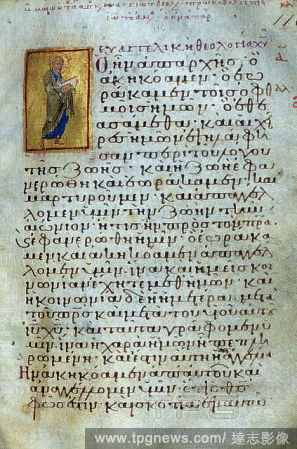 Ὃ ἦν ἀπ' ἀρχῆς, ὃ
ἀκηκόαμεν, ὃ ἑω
ράκαμεν τοῖς ὀφθαλ
μοῖς ἡμῶν, ὃ ἐθε
ασάμεθα, καὶ αἱ χεῖ
ρες ἡμῶν ἐψηλάφη
σαν περὶ τοῦ λόγου
τῆς ζωῆς· καὶ ἡ ζωὴ ἐφα
νερώθη, καὶ ἑωράκαμεν, καὶ
μαρτυροῦμεν, καὶ ἀπαγγέλ
λομεν ὑμῖν τὴν ζωὴν τὴν αἰ
ώνιον, ἥτις ἦν πρὸς τὸν πρα
καὶ ἐφανερώθη ἡμῖν· ὃ ἑωράκα
μεν καὶ ἀκηκόαμεν, ἀπαγγέλ
λομεν ὑμῖν, ἵνα καὶ ὑμεῖς κοι
νωνίαν ἔχητε μεθ' ἡμῶν· καὶ
ἡ κοινωνία δὲ ἡ ἡμετέρα μετὰ
τοῦ πρς καὶ μετὰ τοῦ υυ αὐτοῦ
ιυ χυ· καὶ ταῦτα γράφομεν ὑ
μῖν, ἵνα ἡ χαρὰ ἡμῶν ᾖ πεπλη
ρωμένη. καὶ ἔστιν αὕτη ἡ
ἣν ἀκηκόαμεν ἀπ' αὐτοῦ καὶ
ἀναγγέλλομεν ὑμῖν, ὅτι ὁ θς
φῶς ἐστιν, καὶ σκοτία ἐν αὐτῶ
www.tpgnews.com/ 達志影像